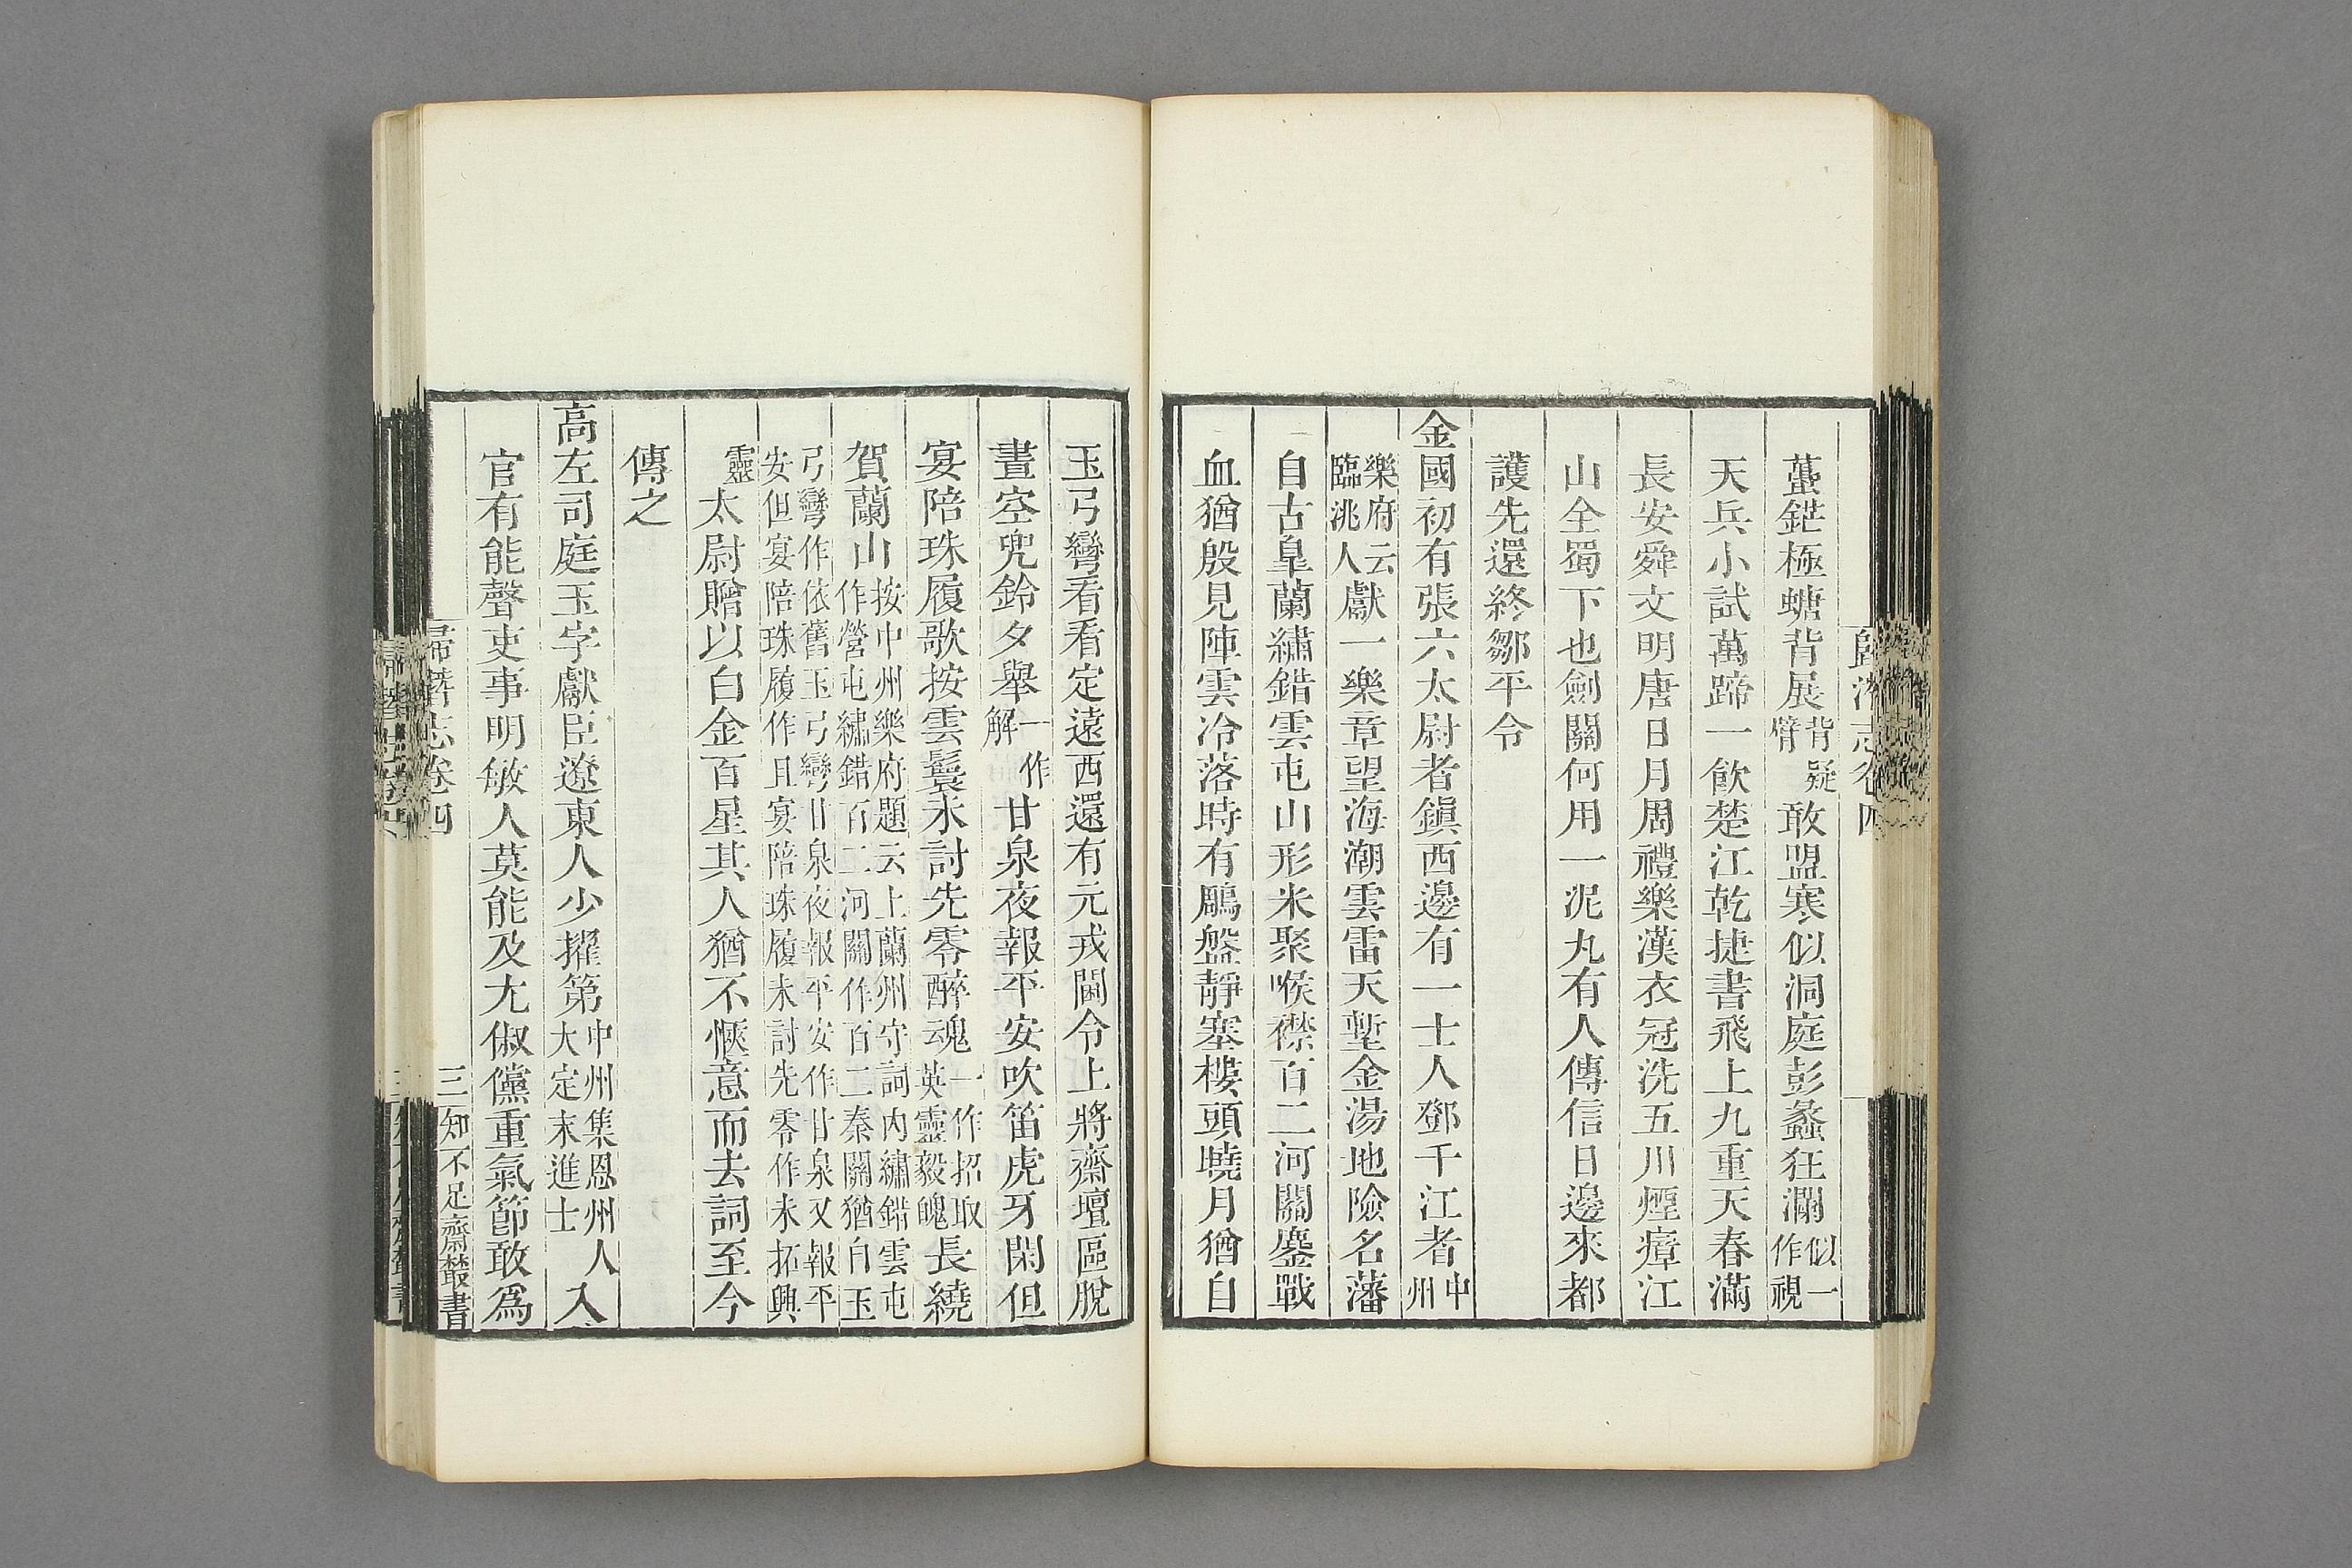 歸潛志卷四
蠆鋩極螗背展背疑臂敢盟寒似洞庭彭蠡狂瀾似一作視
天兵小試萬蹄一飲楚江乾捷書飛上九重天春滿
長安舜文明唐日月周禮樂漢衣冠洗五川煙瘴江
山全蜀下也劍關何用一泥丸有人傳信日邊來都
護先還終鄒平令
金國初有張六太尉者鎮西邊有一士人鄧千江者中州
樂府云臨洮人獻一樂章望海潮雲雷天塹金湯地險名藩
自古皐蘭繡錯雲屯山形米聚喉襟百二河關鏖戰
血猶殷見陣雲冷落時有鵰盤靜塞樓頭曉月猶自
玉弓彎看看定遠西還有元戎閫令上將齋壇區脫
晝空兜鈴夕舉一作解甘泉夜報平安吹笛虎牙閑但
宴陪珠履歌按雲鬟永討先零醉魂一作招取英靈毅魄長繞
賀蘭山按中州樂府題云上蘭州守詞內繡錯雲屯作營屯繡錯百二河關作百二秦關猶自玉
弓彎作依舊玉弓彎甘泉夜報平安作甘泉又報平安但宴陪珠履作且宴陪珠履未討先零作未拓興
靈太尉贈以白金百星其人猶不愜意而去詞至今
傳之
高左司庭玉字獻臣遼東人少擢第中州集恩州人大定末進士入
官有能聲吏事明敏人莫能及尤俶儻重氣節敢爲
歸潛志卷四
三
知不足齋叢書